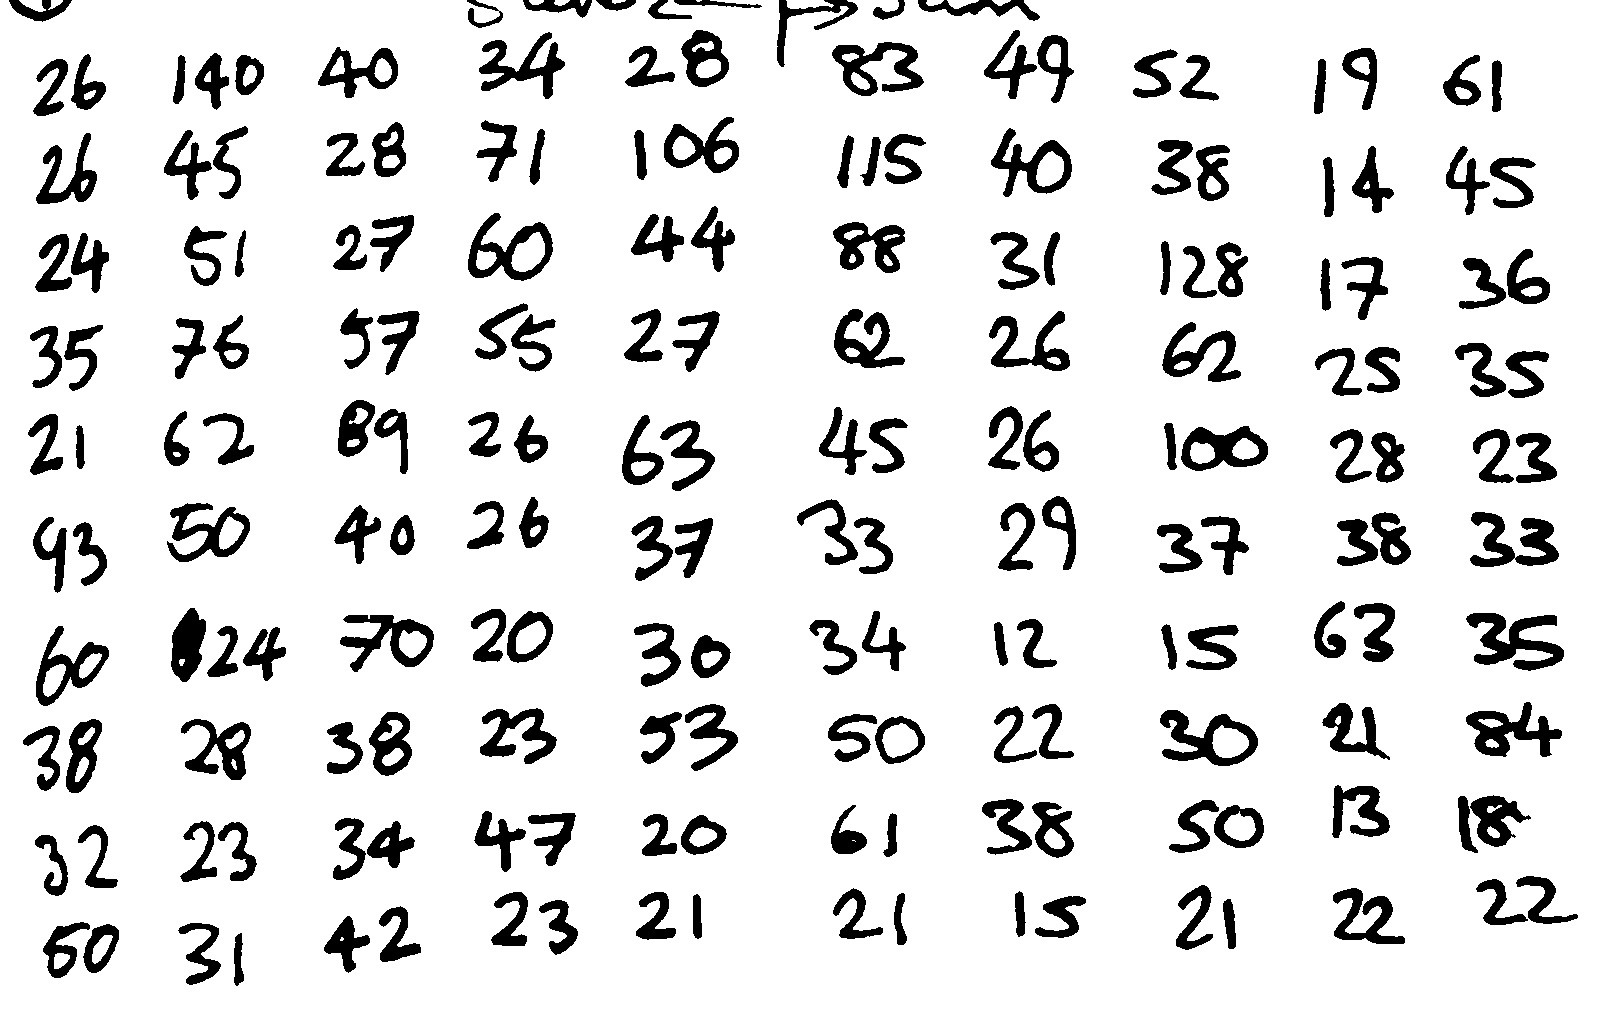 26 140 40 34 28 83 49 52 19 61
26 45 28 71 106 115 40 38 14 45
24 51 27 60 44 88 31 128 17 36
35 76 57 55 27 62 26 62 25 35
21 62 89 26 63 45 26 100 28 23
93 50 40 26 37 33 29 37 38 33
60 24 70 20 30 34 12 15 63 35
38 28 38 23 53 50 22 30 21 84
32 23 34 47 20 61 38 50 13 18
50 31 42 23 21 21 15 21 22 22